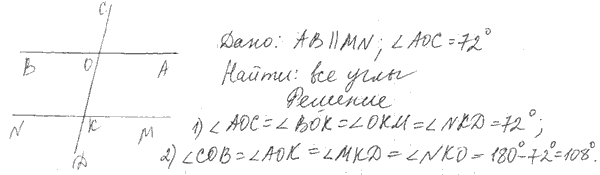 C
B O A
N K M
D
Дано: AB∥MN; ∠AOC=72°
Найти: все углы
Решение
1) ∠AOC=∠BOK=∠OKM=∠NKD=72°;
2) ∠COB=∠AOK=∠MKD=∠NKO=180°-72°=108°.